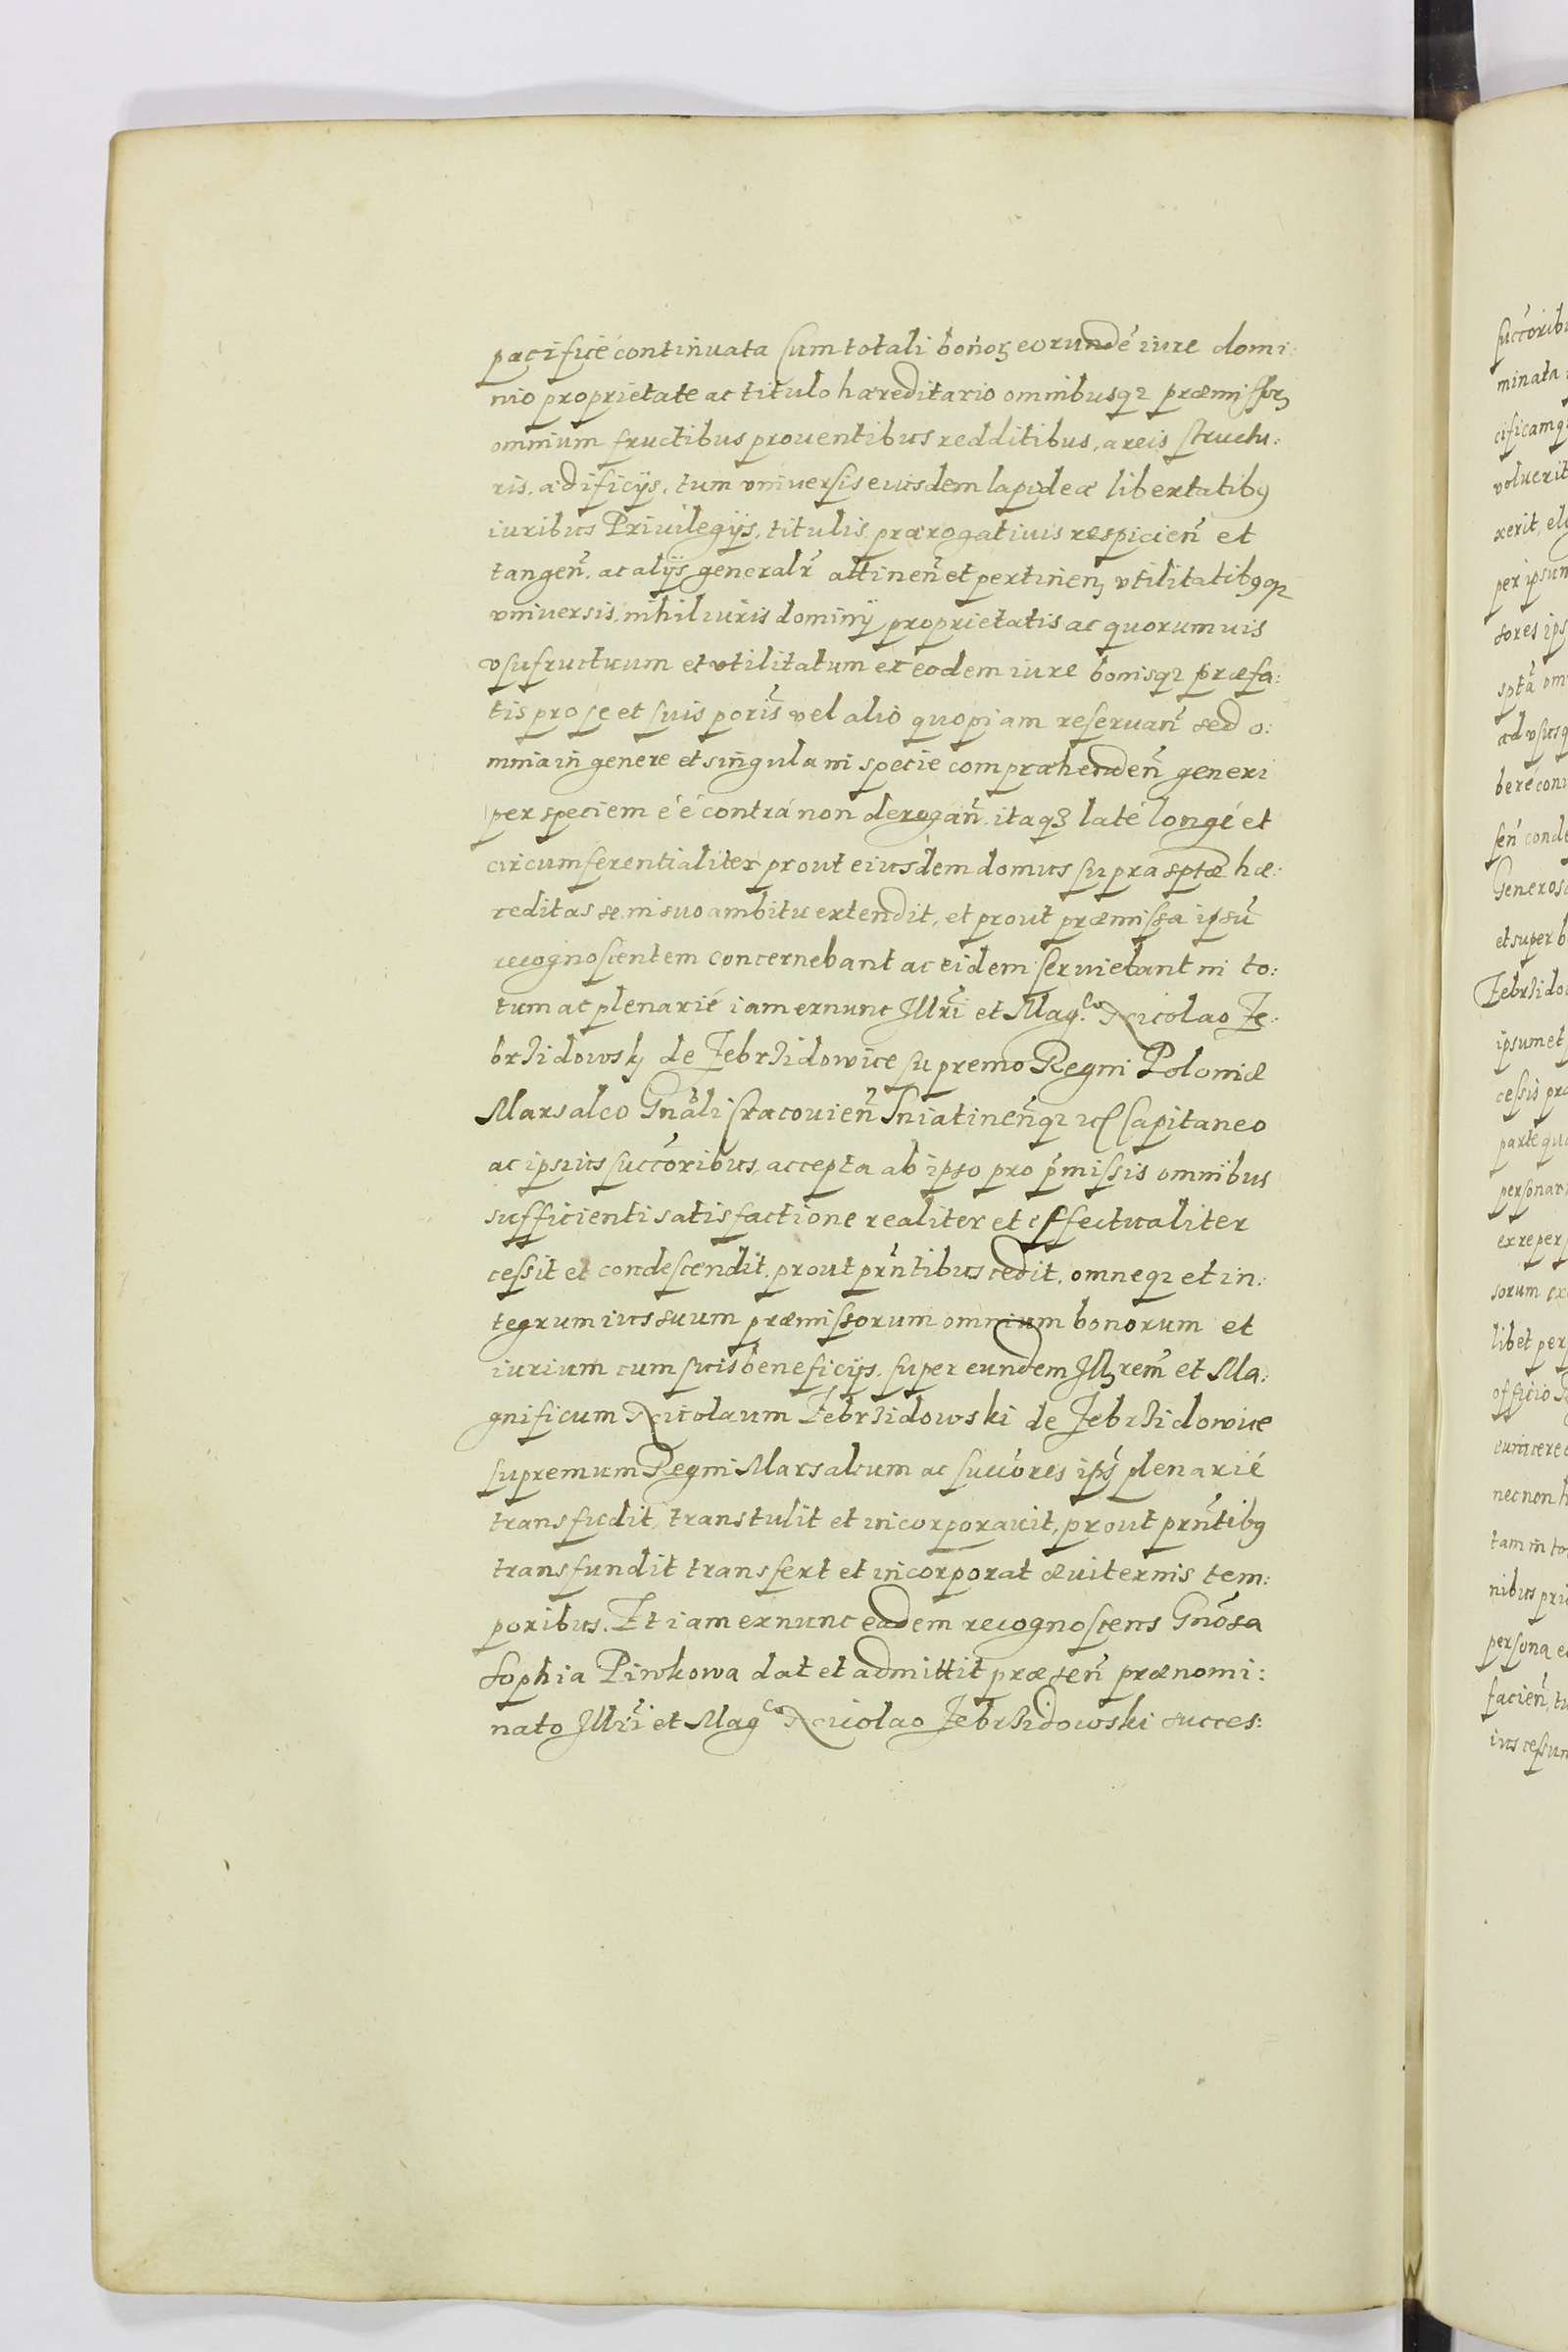 pacificé continuata cum totali bonoꝝ eorundē iure domi:
nio proprietate ac titulo hæreditario omnibusqꝫ præmissorꝫ
omnium fructibus prouentibus redditibus, areis structu:
ris, ædificÿs, tum vniuersis eiusdem lapideæ libertatibꝰ
iuribus Priuilegÿs, titulis prærogatiuis respicien̄ et
tangen̄. ac alÿs generalr̄ attinen̄ et pertinenꝫ vtilitatibꝰqꝫ
vniuersis, nihil iuris dominÿ proprietatis ac quorumuis
vsufructuum et vtilitatum ex eodem iure bonisqꝫ præfa:
tis pro se et suis poris̄ vel alio quopiam reseruan̄ sed o:
mnia in genere et singula in specie compræhenden̄ generi
per speciem é é contrá non derogan̄. itaqꝫ laté longé et
circumferentialiter prout eiusdem domus supra sptæ hæ:
reditas se in suo ambitu extendit, et prout præmissa ipsū
recognoscentem concernebant ac eidem seruiebant in to:
tum ac plenarié iam ex nunc Illri̅ et Mag.co Nicolao Ze:
brzidowskꝫ de Zebrzidowice supremo Regni Poloniæ
Marsalco Gnāli Cracouien̄ Sniatinen̄qꝫ etc Capitaneo
ac ipsius succōribus, accepta ab ipso pro p̄missis omnibus
sufficienti satisfactione realiter et effectualiter
cessit et condescendit, prout pr̄ntibus cedit, omneqꝫ et in:
tegrum ius suum præmissorum omnium bonorum et
iurium cum suis beneficÿs, super eundem Illꝫrem̄ et Ma:
gnificum Nicolaum Zebrzidowski de Zebrzidowice
supremum Regni Marsalcum ac succōres ips̄ plenarié
transfudit, transtulit et incorporauit, prout prn̄tibꝰ
transfundit transfert et incorporat æuiternis tem:
poribus. Et iam ex nunc eadem recognoscens Gnōsa
Sophia Pinkowa dat et admittit præsen̄ prænomi:
nato Illri̅ et Mag.co Nicolao Zebrzidowski succes: